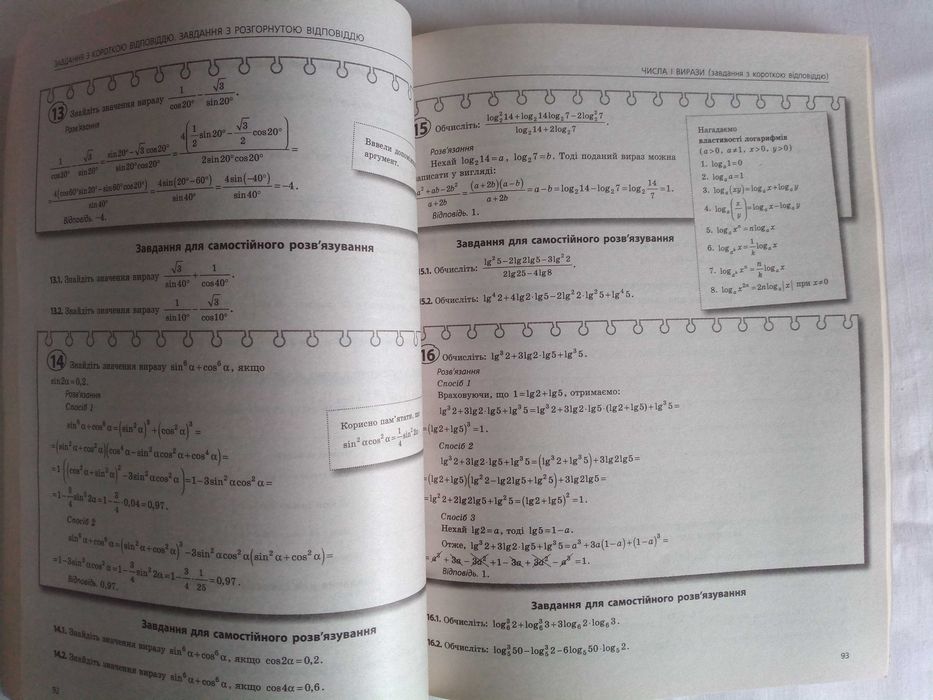 ЗАВДАННЯ З КОРОТКОЮ ВІДПОВІДДЮ. ЗАВДАННЯ З РОЗГОРНУТОЮ ВІДПОВІДДЮ
13 Знайдіть значення виразу 1/cos20° − √3/sin20°.
Розв'язання
1/cos20° − √3/sin20° = (sin20°−√3cos20°)/(sin20°cos20°) = 4(1/2 sin20° − √3/2 cos20°)/(2sin20°cos20°) =
= 4(cos60°sin20°−sin60°cos20°)/sin40° = 4sin(20°−60°)/sin40° = 4sin(−40°)/sin40° = −4.
Відповідь. −4.
Ввели
аргумент.
Завдання для самостійного розв'язування
13.1. Знайдіть значення виразу √3/sin40° + 1/cos40°.
13.2. Знайдіть значення виразу 1/sin10° − √3/cos10°.
14 Знайдіть значення виразу sin⁶α+cos⁶α, якщо
sin2α=0,2.
Розв'язання
Спосіб 1
sin⁶α+cos⁶α=(sin²α)³+(cos²α)³=
=(sin²α+cos²α)(cos⁴α−sin²αcos²α+cos⁴α)=
=1((cos²α+sin²α)²−3sin²αcos²α)=1−3sin²αcos²α=
=1−3/4 sin²2α=1−3/4·0,04=0,97.
Корисно пам'ятати,
sin²αcos²α=1/4 sin²2α
Спосіб 2
sin⁶α+cos⁶α=(sin²α+cos²α)³−3sin²αcos²α(sin²α+cos²α)=
=1−3sin²αcos²α=1−3/4 sin²2α=1−3/4·1/25=0,97.
Відповідь. 0,97.
Завдання для самостійного розв'язування
14.1. Знайдіть значення виразу sin⁶α+cos⁶α, якщо cos2α=0,2.
14.2. Знайдіть значення виразу sin⁶α+cos⁶α, якщо cos4α=0,6.
92
ЧИСЛА І ВИРАЗИ (завдання з короткою відповіддю)
15 Обчисліть: (log₂²14+log₂14log₂7−2log₂²7)/(log₂14+2log₂7).
Розв'язання
Нехай log₂14=a, log₂7=b. Тоді поданий вираз можна
записати у вигляді:
(a²+ab−2b²)/(a+2b)=(a+2b)(a−b)/(a+2b)=a−b=log₂14−log₂7=log₂ 14/7=1.
Відповідь. 1.
Нагадаємо
властивості логарифмів
(a>0, a≠1, x>0, y>0)
1. logₐ1=0
2. logₐa=1
3. logₐ(xy)=logₐx+logₐy
4. logₐ(x/y)=logₐx−logₐy
5. logₐxⁿ=nlogₐx
6. log_{a^k} x=1/k logₐx
7. log_{a^k} xⁿ=n/k logₐx
8. logₐx²ⁿ=2nlogₐ|x| при x≠0
Завдання для самостійного розв'язування
15.1. Обчисліть: (lg²5−2lg2lg5−3lg²2)/(2lg25−4lg8).
15.2. Обчисліть: lg⁴2+4lg2·lg5−2lg²2·lg²5+lg⁴5.
16 Обчисліть: lg³2+3lg2·lg5+lg³5.
Розв'язання
Спосіб 1
Враховуючи, що 1=lg2+lg5, отримаємо:
lg³2+3lg2·lg5+lg³5=lg³2+3lg2·lg5·(lg2+lg5)+lg³5=
=(lg2+lg5)³=1.
Спосіб 2
lg³2+3lg2·lg5+lg³5=(lg³2+lg³5)+3lg2lg5=
=(lg2+lg5)(lg²2−lg2lg5+lg²5)+3lg2lg5=
=lg²2+2lg2lg5+lg²5=(lg2+lg5)²=1.
Спосіб 3
Нехай lg2=a, тоді lg5=1−a.
Отже, lg³2+3lg2·lg5+lg³5=a³+3a(1−a)+(1−a)³=
=a³+3a−3a²+1−3a+3a²−a³=1.
Відповідь. 1.
Завдання для самостійного розв'язування
16.1. Обчисліть: log₆³2+log₆³3+3log₆2·log₆3.
16.2. Обчисліть: log₅³50−log₅³2−6log₅50·log₅2.
93